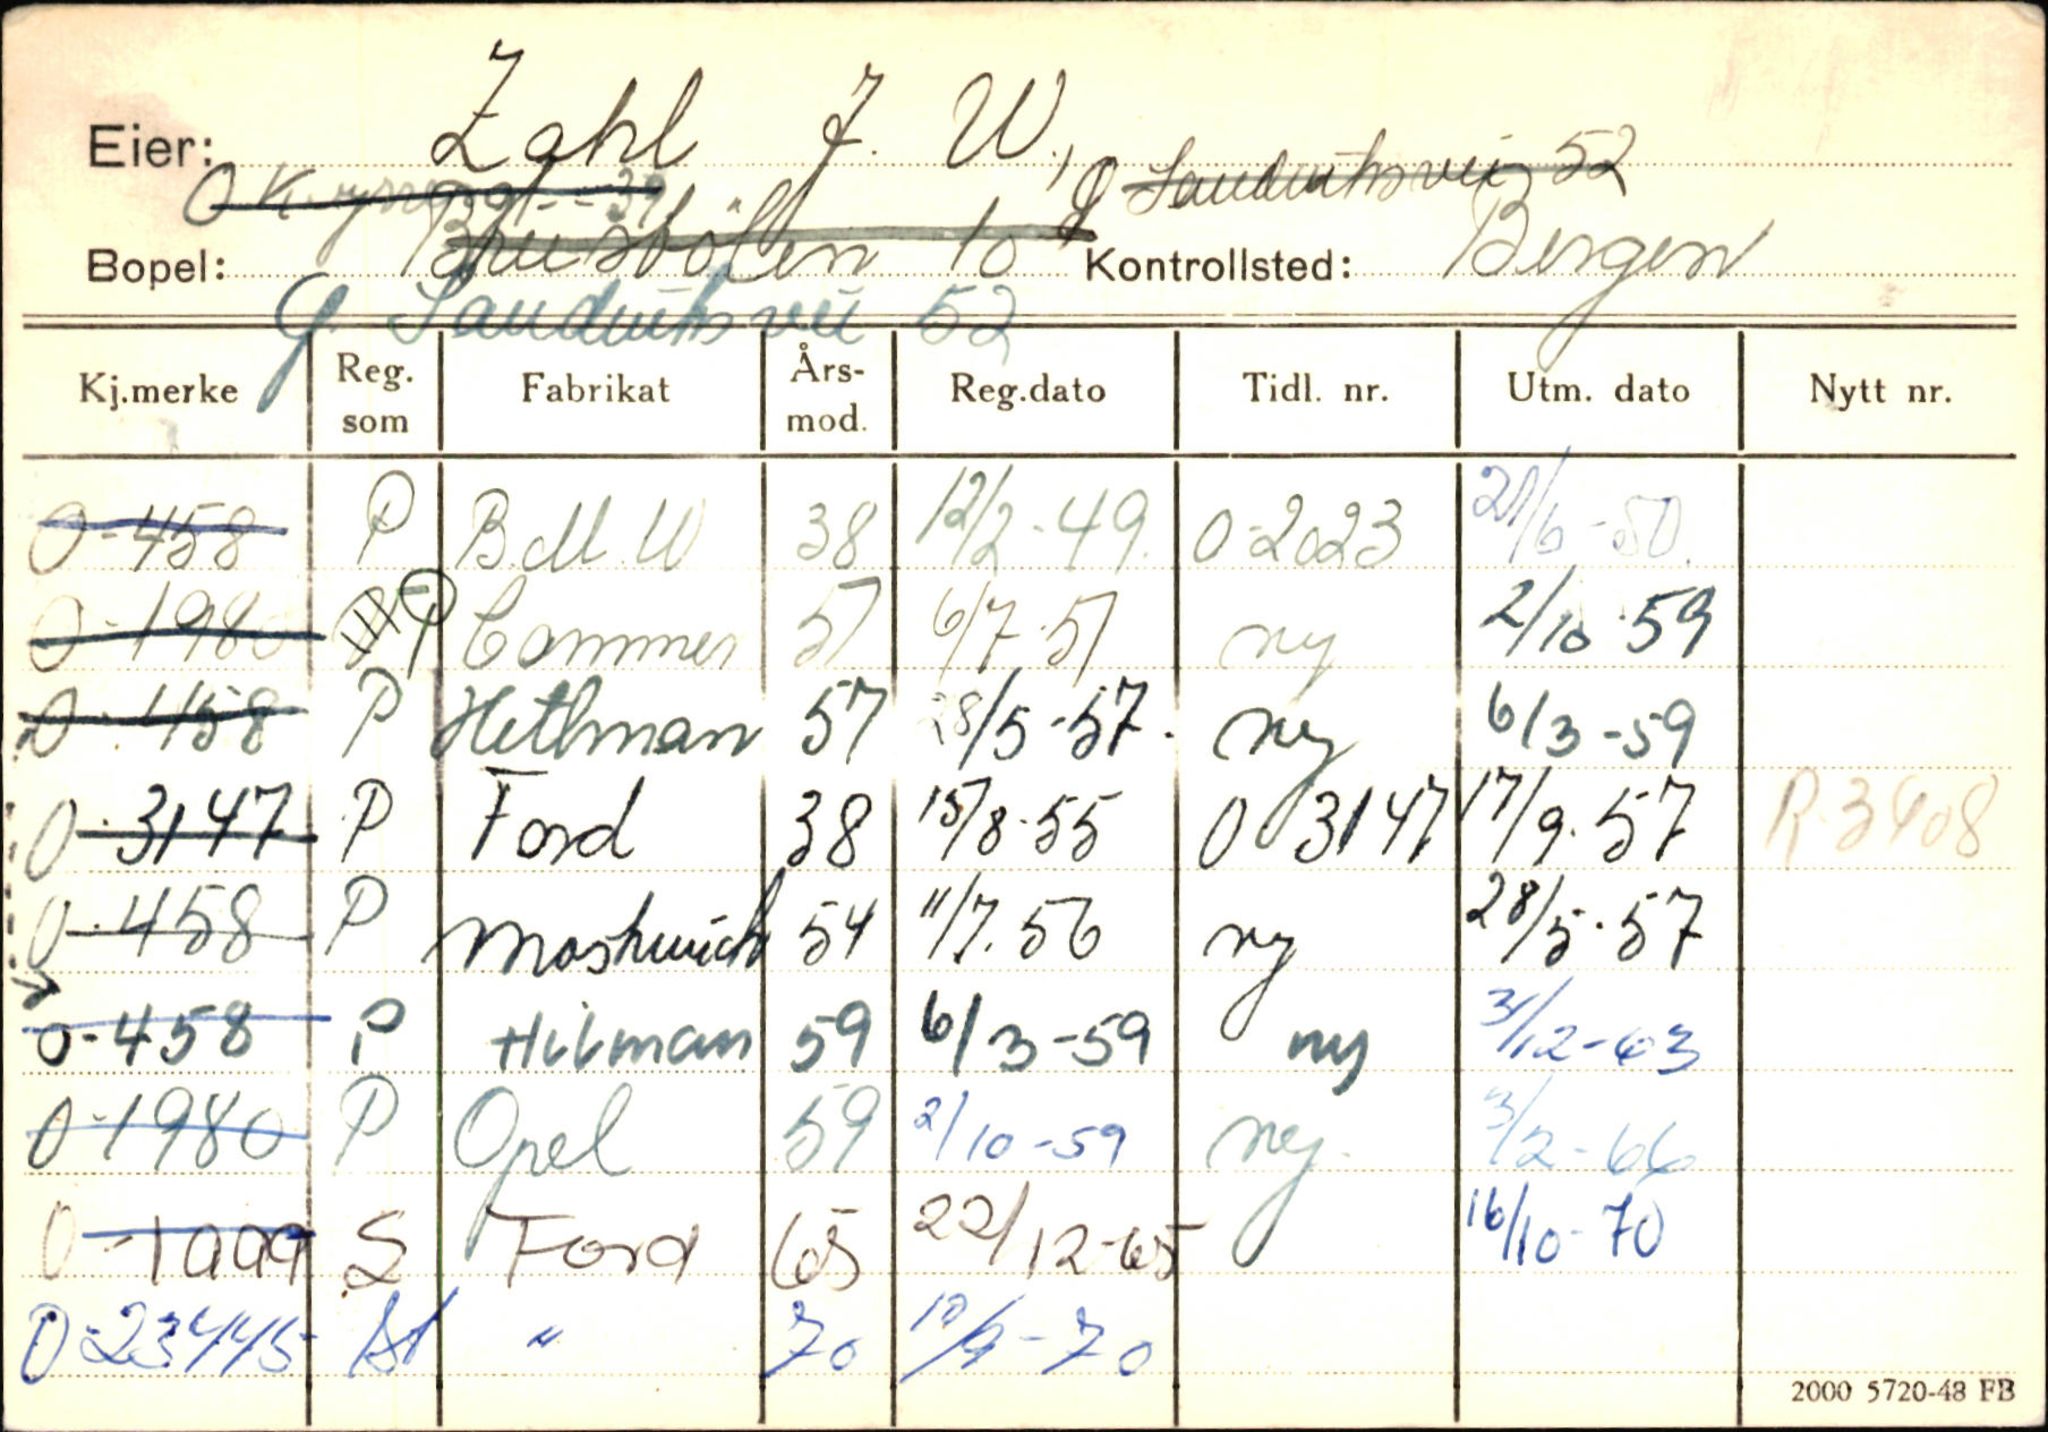 Eier: Zahl J. W.,
O K. 39 G Sandviksvei 52
Bopel: 10 Kontrollsted: Bergen
G. Sandviksvei 52
Kj.merke Reg. som Fabrikat Års-mod. Reg.dato Tidl. nr. Utm. dato Nytt nr.
O-458 P B.M.W 38 12/2-49. O-2023 21/6-50.
O-1980 Commer 51 6/7.51 ny 2/10.59
O-458 P Hillman 57 28/5-57. ny 6/3-59
O-3147 P Ford 38 15/8.55 O 3147 17/9.57 R.3408
O-458 P Moskwich 54 11/7.56 ny 28/5.57
O-458 P Hilman 59 6/3-59 ny 3/12-63
O-1980 P Opel 59 2/10-59 ny. 3/2-66
O-1999 S Ford 65 22/12-65 16/10-70
O-23445 St " 70 10/9-70
2000 5720-48 FB